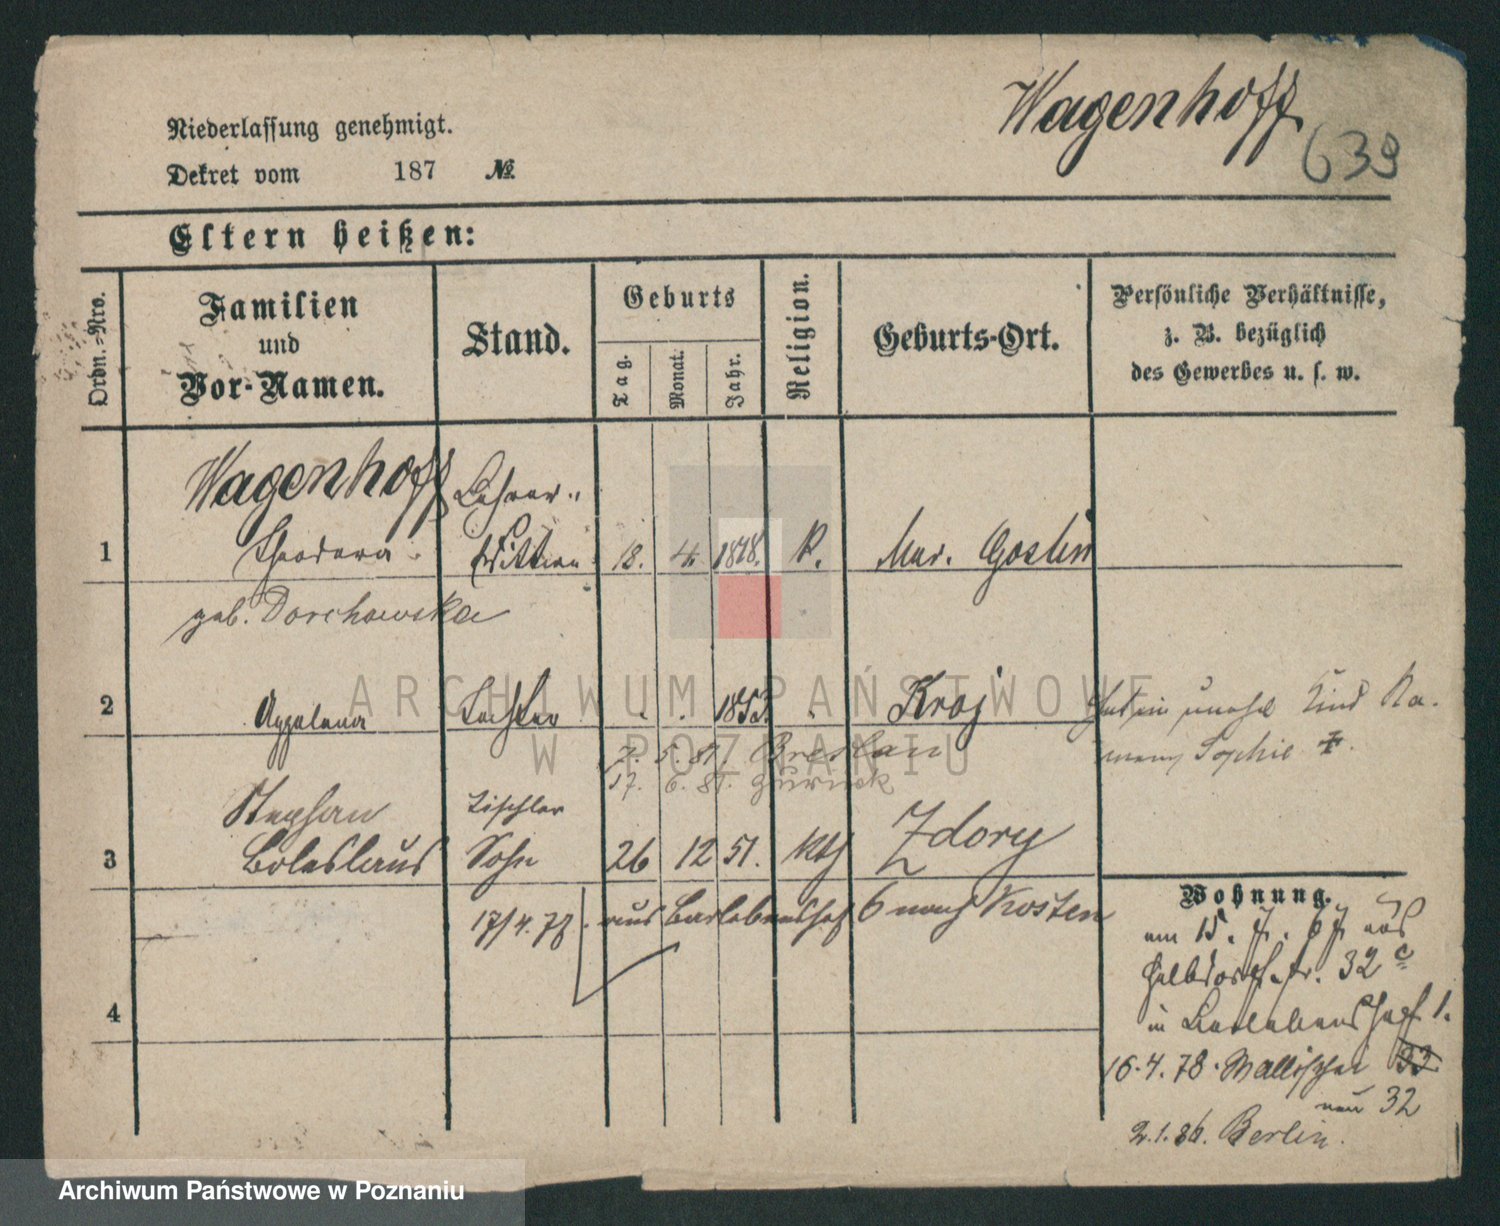 Wagenhoff
639
Niederlassung genehmigt.
Dekret vom 187 №
Eltern heißen:
Ordn.-Nro.
Familien
und
Vor-Namen.
Stand.
Geburts
Tag.
Monat.
Jahr.
Religion.
Geburts-Ort.
Persönliche Verhältnisse,
z. B. bezüglich
des Gewerbes u. s. w.
Wagenhoff Lehrer-
1 Theodora Wittwe 18. 4. 1828. K. Mur. Goslin
geb. Dorchowska
2 Appolena Tochter 1853. Kroj
unehel Kind
Sophie
7. 5. 81. Breslau
17. 6. 81. zurück
Stephan Tischler
3 Boleslaus Sohn 26 12 51. kth Zdory
17/4. 77. aus 6 nach Kosten
4
Wohnung.
am 15. 7. 67 aus
32 c
in 1.
16.4.78. Wallischei 33
neu 32
2.1.86. Berlin.
ARCHIWUM PAŃSTWOWE
W POZNANIU
Archiwum Państwowe w Poznaniu